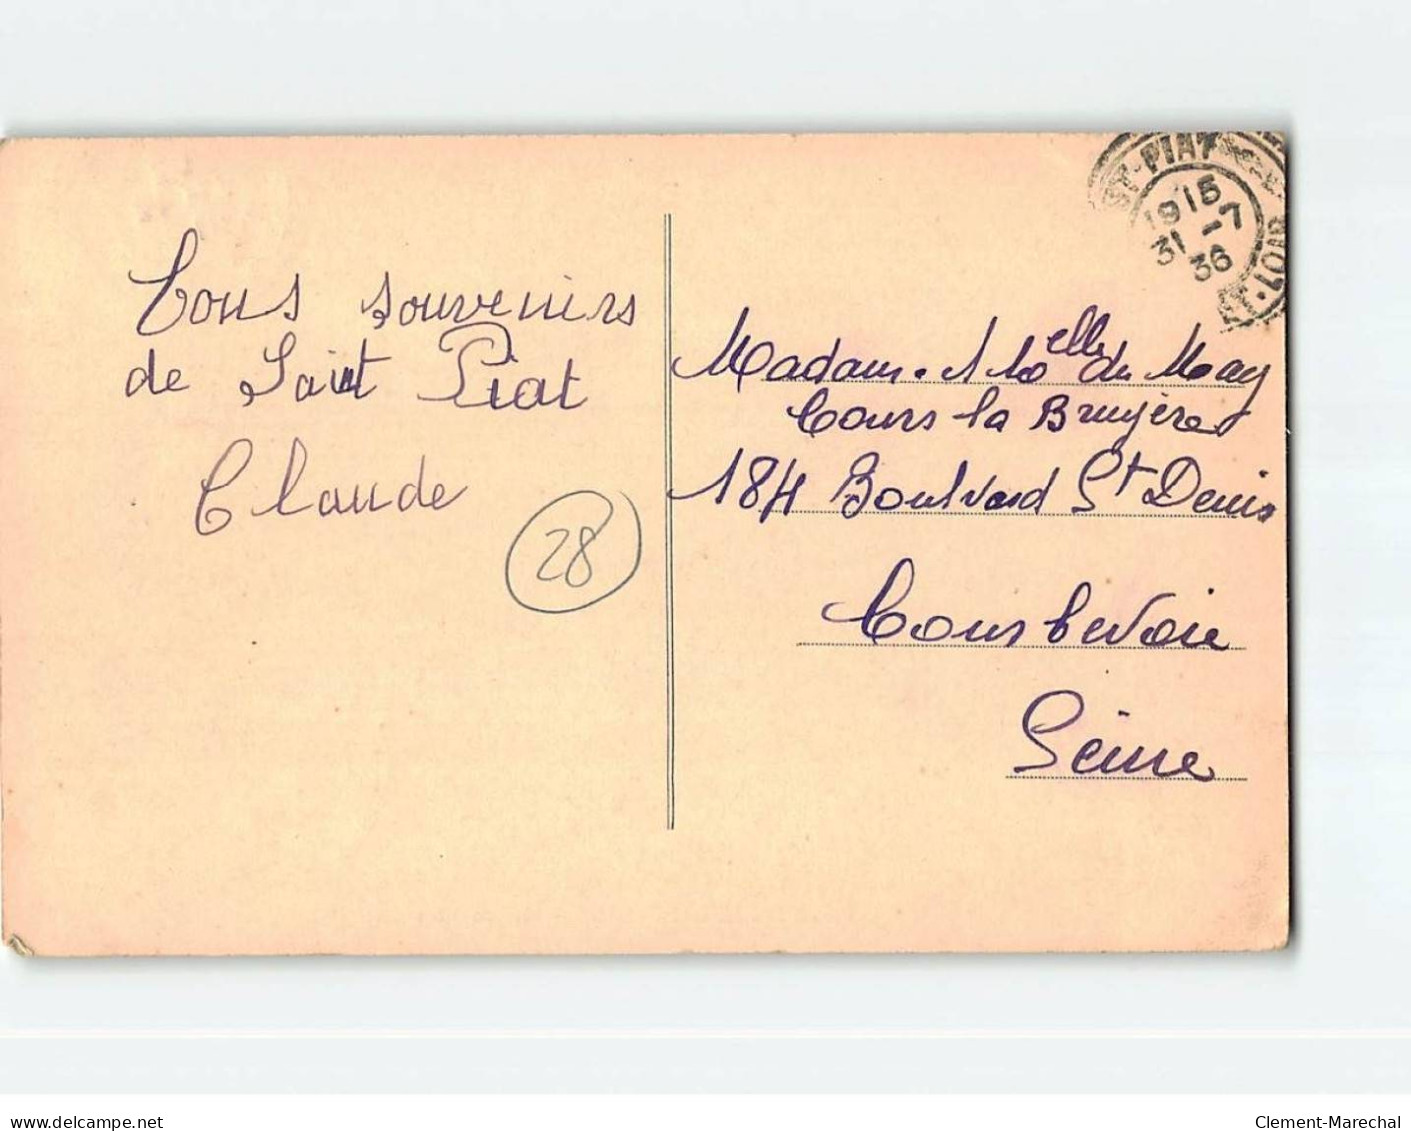 Tous souvenirs
de Saint Piat
Claude
28
ST-PIAT
1915
31-7
36
ET-LOIR
Madame
elle du May
Cours la Bruyère
184 Boulvard St Denis
Courbevoie
Seine
delcampe.net
Clement-Marechal